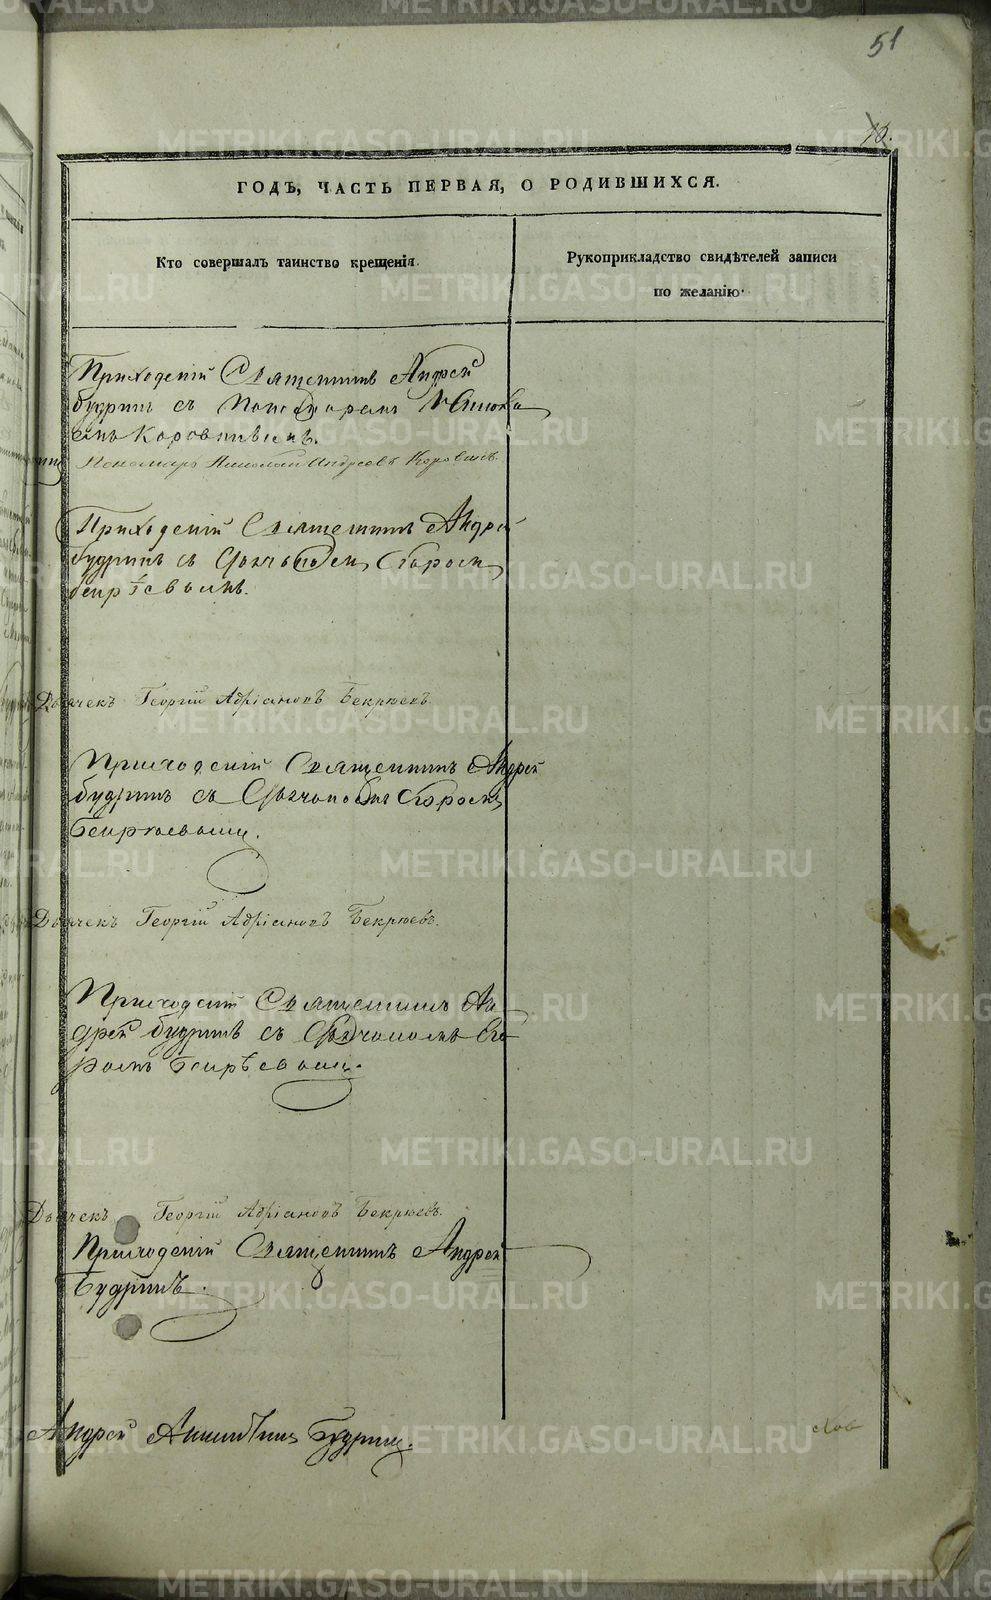 51
10.
ГОДЪ, ЧАСТЬ ПЕРВАЯ, О РОДИВШИХСЯ.
Кто совершалъ таинство крещенія.
Рукоприкладство свидѣтелей записи
по желанію.
Приходскій Священникъ Андрей
Будринъ съ Пономаремъ Никола
емъ Коровинымъ.
Пономарь Николай Андреевъ Коровинъ.
Приходскій Священникъ Андрей
Будринъ съ Дьячкомъ Егоромъ
Бекрѣевымъ.
Дьячекъ Георгій Адріановъ Бекрюевъ
Приходскій Священникъ Андрей
Будринъ съ Дьячкомъ Егоромъ
Бекрюевымъ.
Дьячекъ Георгій Адріановъ Бекрюевъ.
Приходскій Священникъ Ан
дрей Будринъ съ Дьячкомъ Его
ромъ Бекрѣевымъ.
Дьячекъ Георгій Адріановъ Бекрюевъ.
Приходскій Священникъ Андрей
Будринъ.
Андрей Будринъ.
METRIKI.GASO-URAL.RU